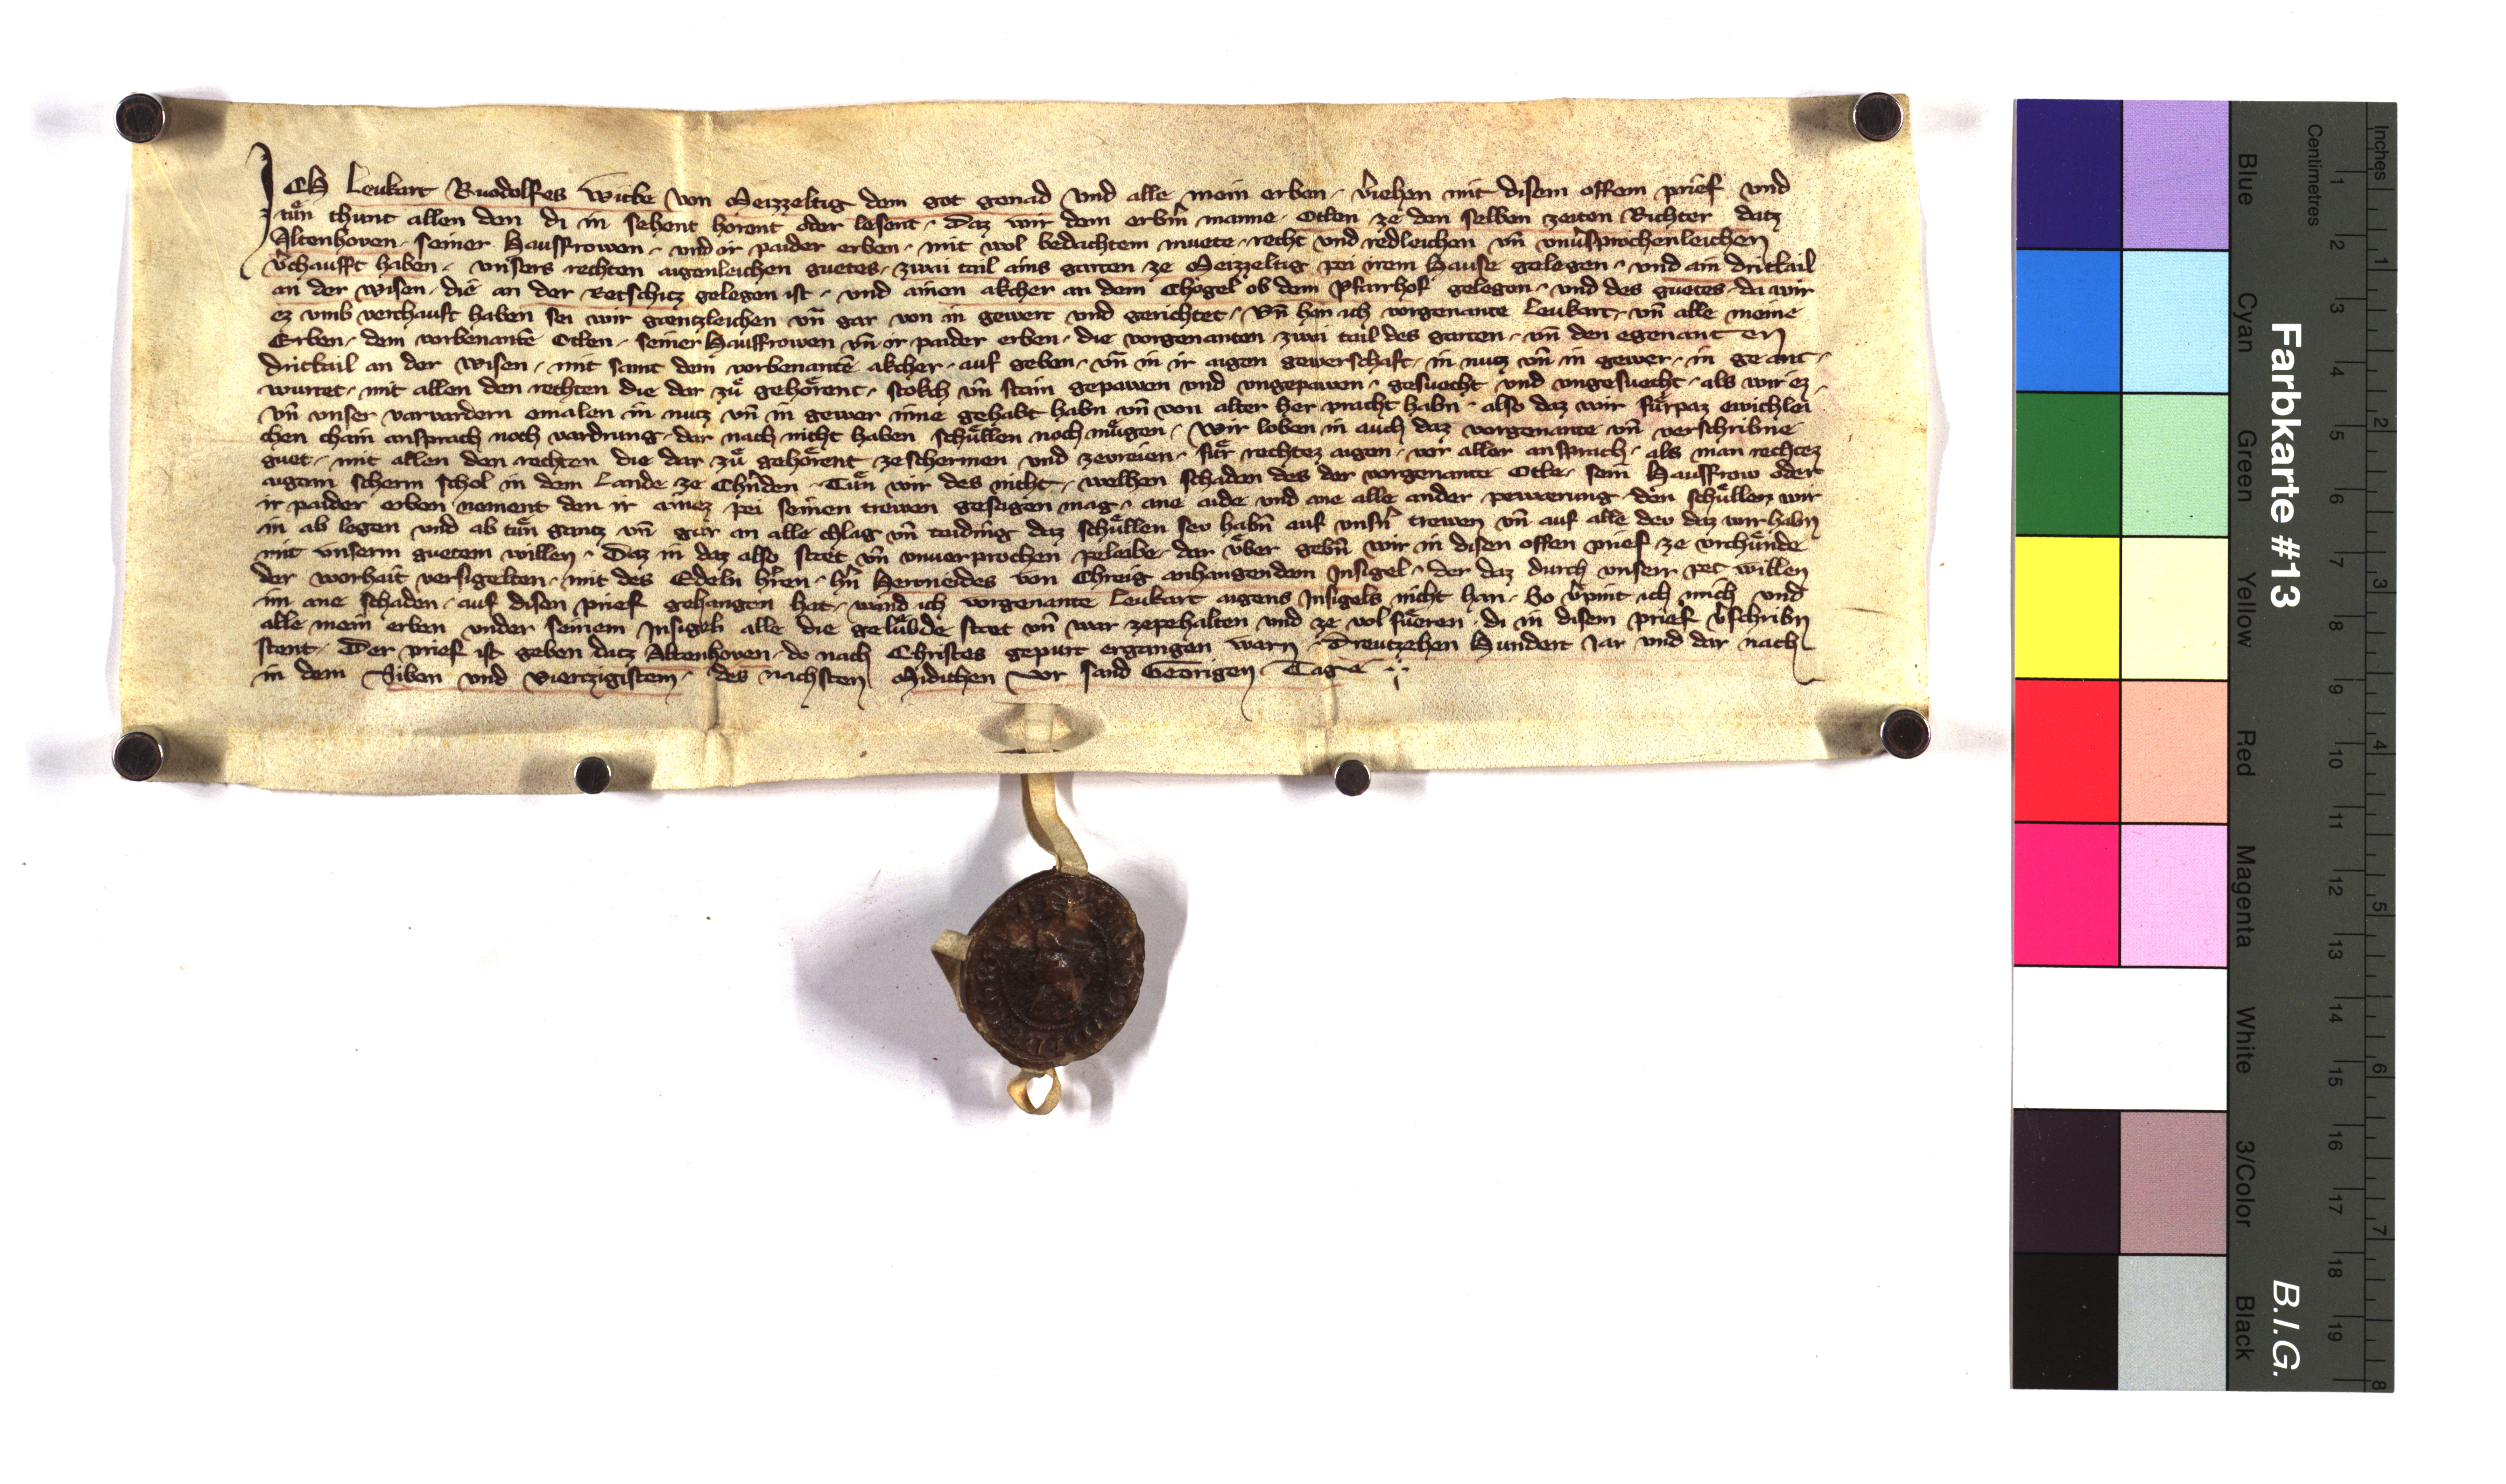 ICH Leukart Ruodolfes Witbe von Meizzeltig dem got genad vnd alle mein erben · v̄iehen mit disem offem prief vnd
tuͤn chunt allen den di in sehent hoͤrent oder lesent · Daz wir dem erb̄m manne · Otlen ze den selben zeiten Richter datz
Altenhoven · seiner Hausfrowen · vnd ir paider erben · mit wol bedachtem muete · recht vnd redleichen vn̄ vnv̄sprochenleichen
v̄chaufft haben · vnsers rechten aigenleichen guetes · zwai tail ains garten ze Meizzeltig pei irem Hause gelegen · vnd ain drittail
an der wisen · die an der Retschitz gelegen ist · vnd ainen akcher an dem Chogel ob dem Pfarrhof gelegen · vnd des guetes · da wir
ez vmb verchauft haben sei wir gaentzleichen vn̄ gar von in gewert vnd gerichtet · Vn̄ han ich vorgenante Leukart · vn̄ alle meine
Erben · dem vorbenantē Otlen · seiner Hausfrowen vn̄ ir paider erben · die vorgenanten · zwai tail des garten · vn̄ den egenant en
drittail an der wisen · mit samt dem vorbenantē akcher · auf geben · vn̄ in ir aigen gewerschaft · in nutz vn̄ in gewer · in ge ant ·
wurtet · mit allen den rechten die dar zuͤ gehoͤrent · stokch vn̄ stain gepawen vnd vngepawen · gesuecht vnd vngesuecht · als wir ez ·
vn̄ vnser varvardern emalen in nutz vn̄ in gewer inne gehabt habn vn̄ von alter her pracht habn · also daz wir fuͤrpaz ewichlei
chen chain ansprach noch vardrung · dar nach nicht haben schuͤllen noch muͤgen · Wir loben in auch daz vorgenante vn̄ verschribne
guet · mit allen den rechten die dar zuͤ gehoͤrent ze schermen vnd zevreien · fuͤr rechtez aigen · vor aller ansprach · als man rechtez
aigem scherm schol in dem Lande ze Chn̄den · Tuͤn wir des nicht · welhen schaden des der vorgenante Otle · sein Hausfrow oder
ir paider erben nement den ir ainez pei seinen trewen gesagen mag · ane aide vnd ane alle ander pewaerung · den schuͤllen wir
in ab legen vnd ab tuͤn gantz vn̄ gar an alle chlag vn̄ taiding daz schuͤllen sev habn̄ auf vnsn̄ trewen vn̄ auf alle dev daz wir habn
mit vnserm guetem willen · Daz in daz also staet vn̄ vnuerprochen peleibe · dar vͤber gebn̄ wir in disen offen prief ze vrchuͤnde
der worhait versigelten · mit des Edeln hr̄en · hn̄ Herneides von Chreig anhangendem Insigel · der daz durch vnserr pet willen
im ane schaden · auf disen prief gehangen hat · wand ich vorgenante Leukart aigens Insigels nicht han · So v̄pint ich mich vnd
alle mein erben vnder seinem Insigeh alle die geluͤbde staet vn̄ war zepehalten vnd ze vol fuͤeren · di in disem prief v̄schribn
stent · Der prief ist geben datz Altenhoven · do nach Christes gepurt ergangen warn · Dreutzehen Hundert Jar vnd dar nach
in dem Siben vnd Viertzigistem · des nachsten Midichen vor sand Georigen Tage
Farbkarte #13
B.I.G.
Inches
Centimetres
1 2 3 4 5 6 7 8 9 10 11 12 13 14 15 16 17 18 19
1 2 3 4 5 6 7 8
Blue
Cyan
Green
Yellow
Red
Magenta
White
3/Color
Black